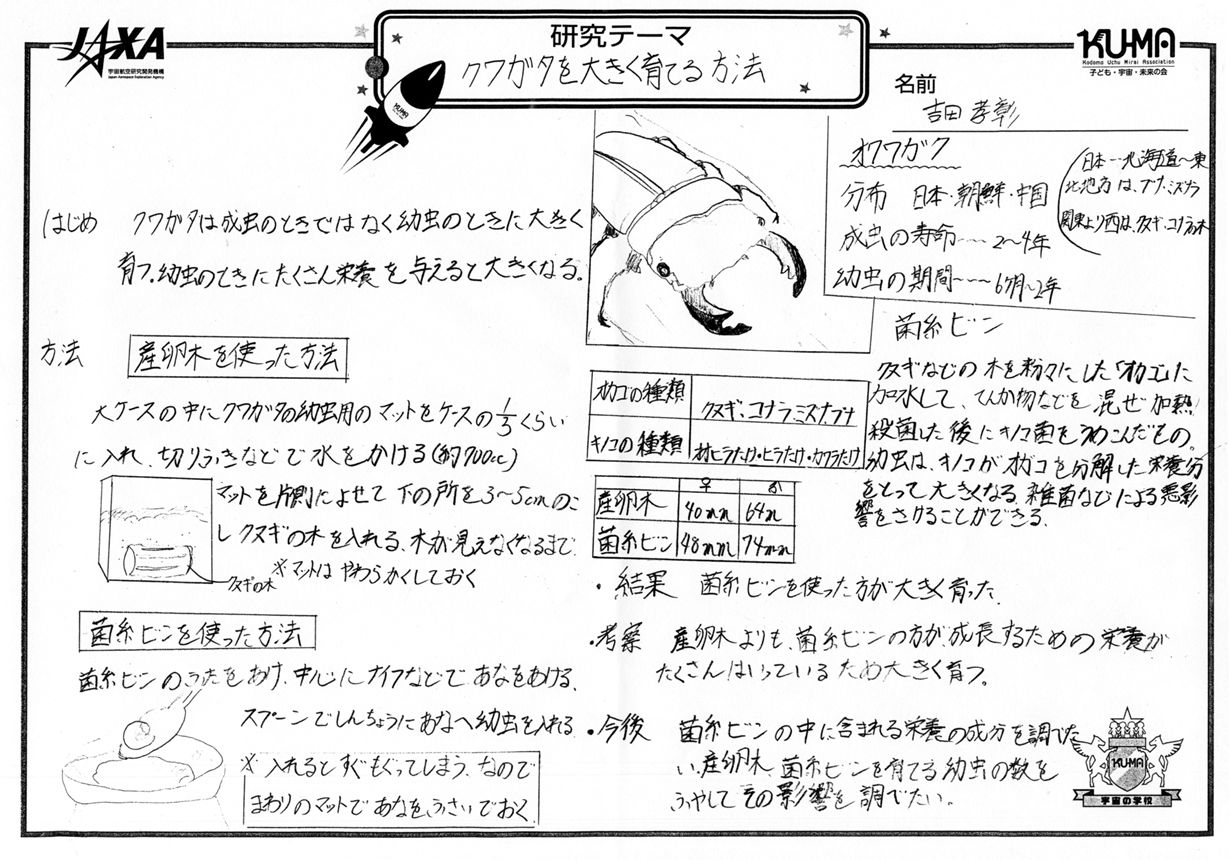 JAXA
宇宙航空研究開発機構
Japan Aerospace Exploration Agency
研究テーマ
クワガタを大きく育てる方法
KUMA
KU-MA
Kodomo Uchu Mirai Association
子ども・宇宙・未来の会
名前
吉田 孝彰
はじめ クワガタは成虫のときではなく幼虫のときに大きく
育つ。幼虫のときにたくさん栄養を与えると大きくなる。
方法 産卵木を使った方法
大ケースの中にクワガタの幼虫用のマットをケースの1/3くらい
に入れ、切りふきなどで水をかける(約700cc)
マットを片側によせて下の所を3〜5cmのこ
しクヌギの木を入れる、木が見えなくなるまで、
※マットはやわらかくしておく
クヌギの木
菌糸ビンを使った方法
菌糸ビンのふたをあけ、中心にナイフなどであなをあける、
スプーンでしんちょうにあなへ幼虫を入れる
※入れるとすぐもぐってしまう、なので
まわりのマットであなをふさいでおく
オオワガク
分布 日本・朝鮮・中国
成虫の寿命----2〜4年
幼虫の期間----6ヶ月〜2年
日本--北海道〜東
北地方は、ブナ・ミズナラ
関東より西は、クヌギ・コナラの木
菌糸ビン
クヌギなどの木を粉々にした「オガコ」に
加水して、てんか物などを混ぜ加熱
殺菌した後にキノコ菌をうめこんだもの。
幼虫は、キノコがオガコを分解した栄養分
をとって大きくなる、雑菌などによる悪影
響をさけることができる、
オガコの種類 クヌギ、コナラ、ミズナブナ
キノコの種類 オオヒラタケ・ヒラタケ・カワラタケ
♀ ♂
産卵木 40mm 64m
菌糸ビン 48mm 74mm
・結果 菌糸ビンを使った方が大きく育った、
・考察 産卵木よりも、菌糸ビンの方が成長するための栄養が
たくさんはいっているため大きく育つ。
・今後 菌糸ビンの中に含まれる栄養の成分を調べた
い、産卵木 菌糸ビンを育てる幼虫の数を
ふやしてその影響を調べたい。
KUMA
宇宙の学校